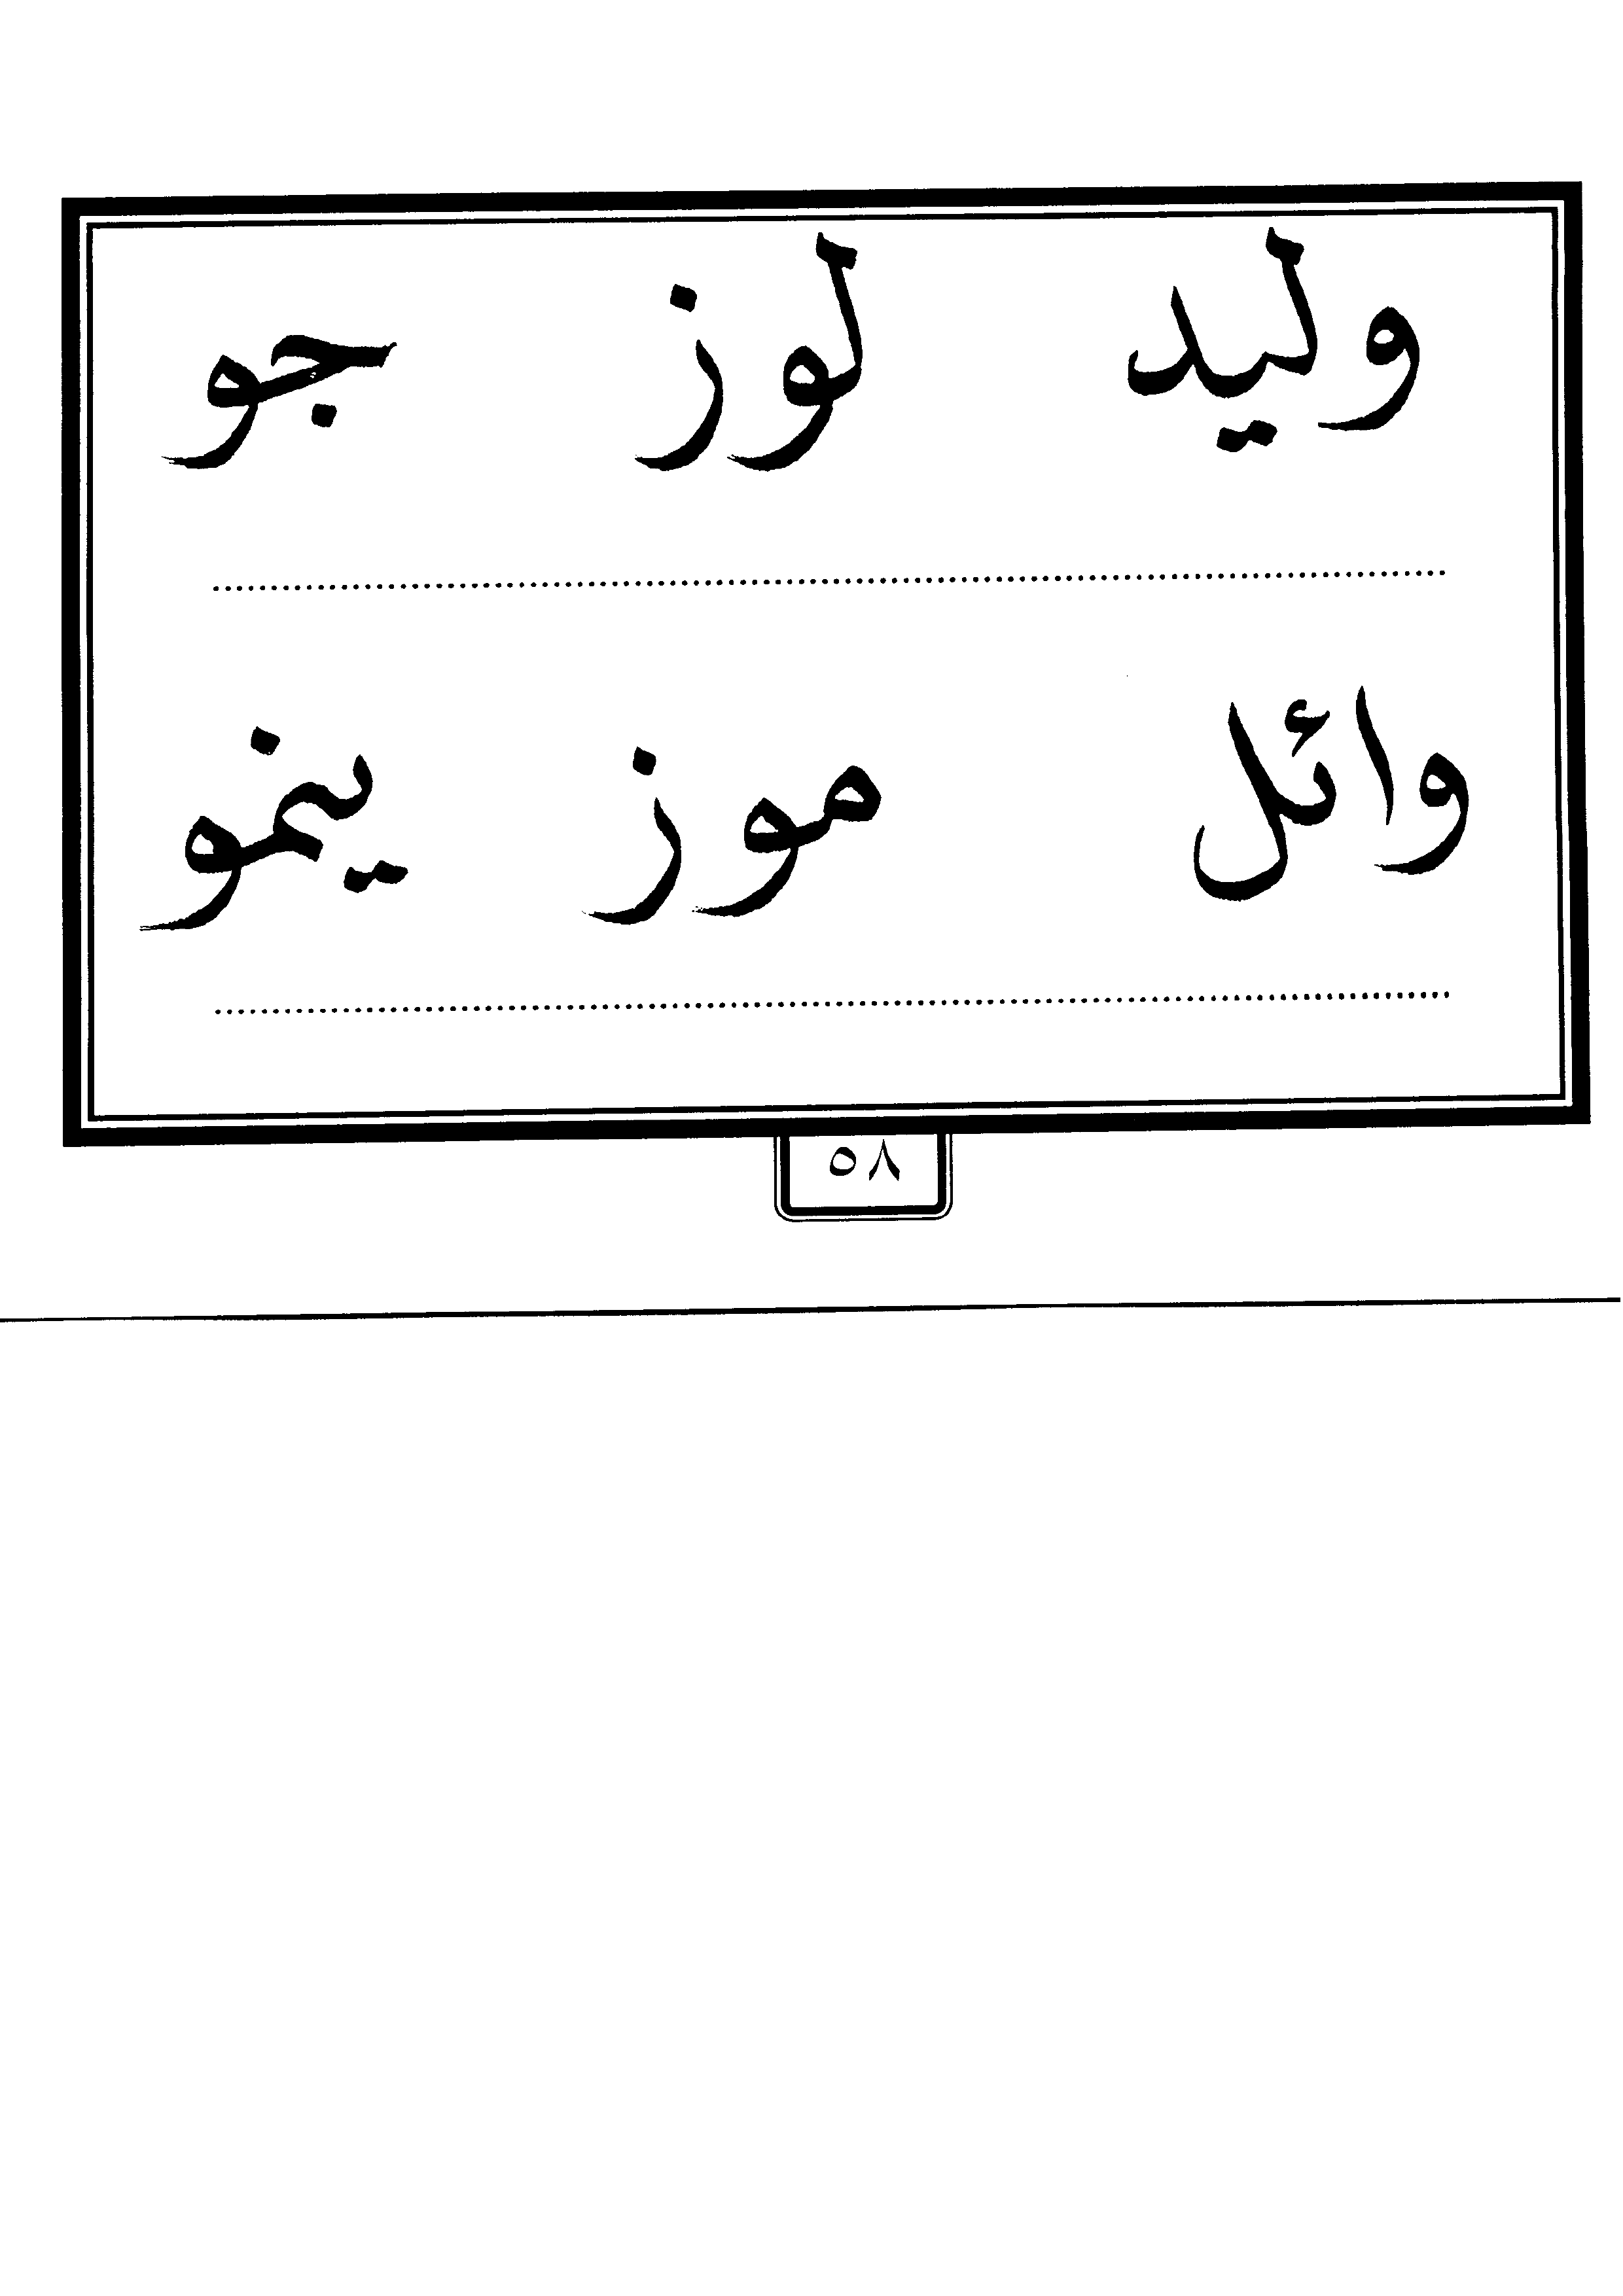 وليد لوز جو
وائل موز ينمو
٥٨